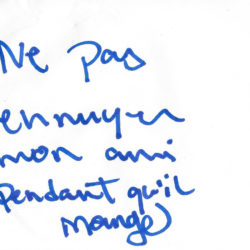 Ne pas
ennuyer
mon ami
pendant qu'il
mange